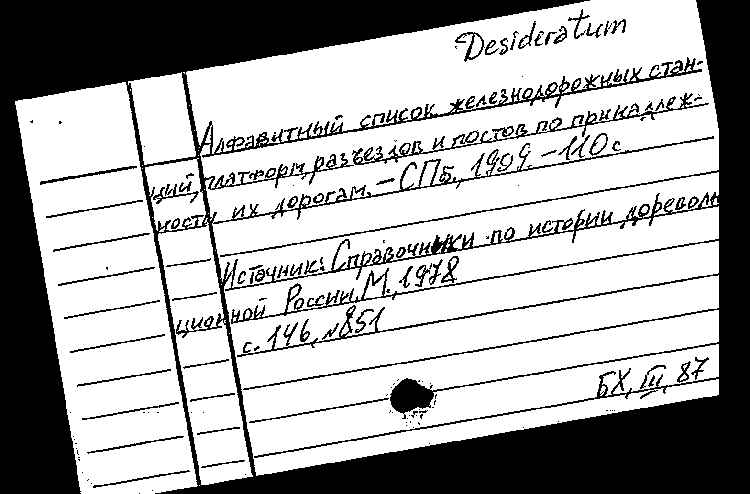 Desideratum
Алфавитный список железнодорожных стан-
ций, платформ, разъездов и постов по принадлеж-
ности их дорогам. — СПб., 1909. — 110 с.
Источник: Справочники по истории дореволю
ционной России. М., 1978
с. 146, №851
БХ, III, 87